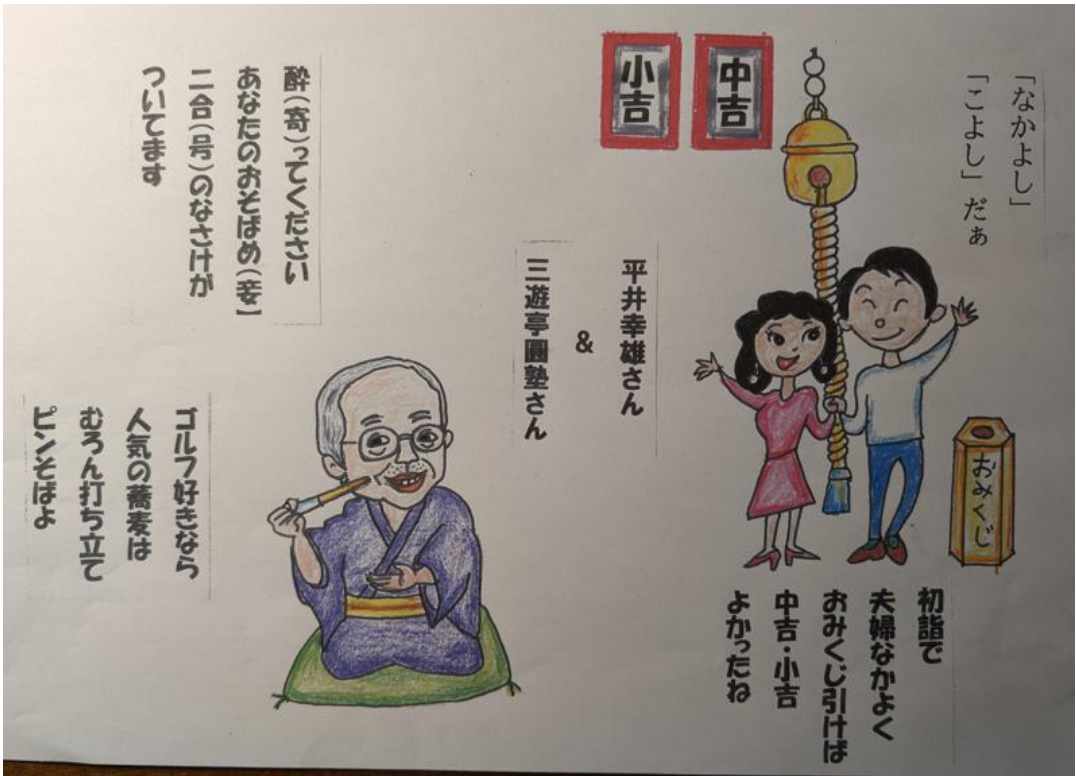 「なかよし」
「こよし」だぁ
中吉
小吉
おみくじ
初詣で
夫婦なかよく
おみくじ引けば
中吉・小吉
よかったね
平井幸雄さん
&
三遊亭圓塾さん
酔(寄)ってください
あなたのおそばめ(妾)
二合(号)のなさけが
ついてます
ゴルフ好きなら
人気の蕎麦は
むろん打ち立て
ピンそばよ